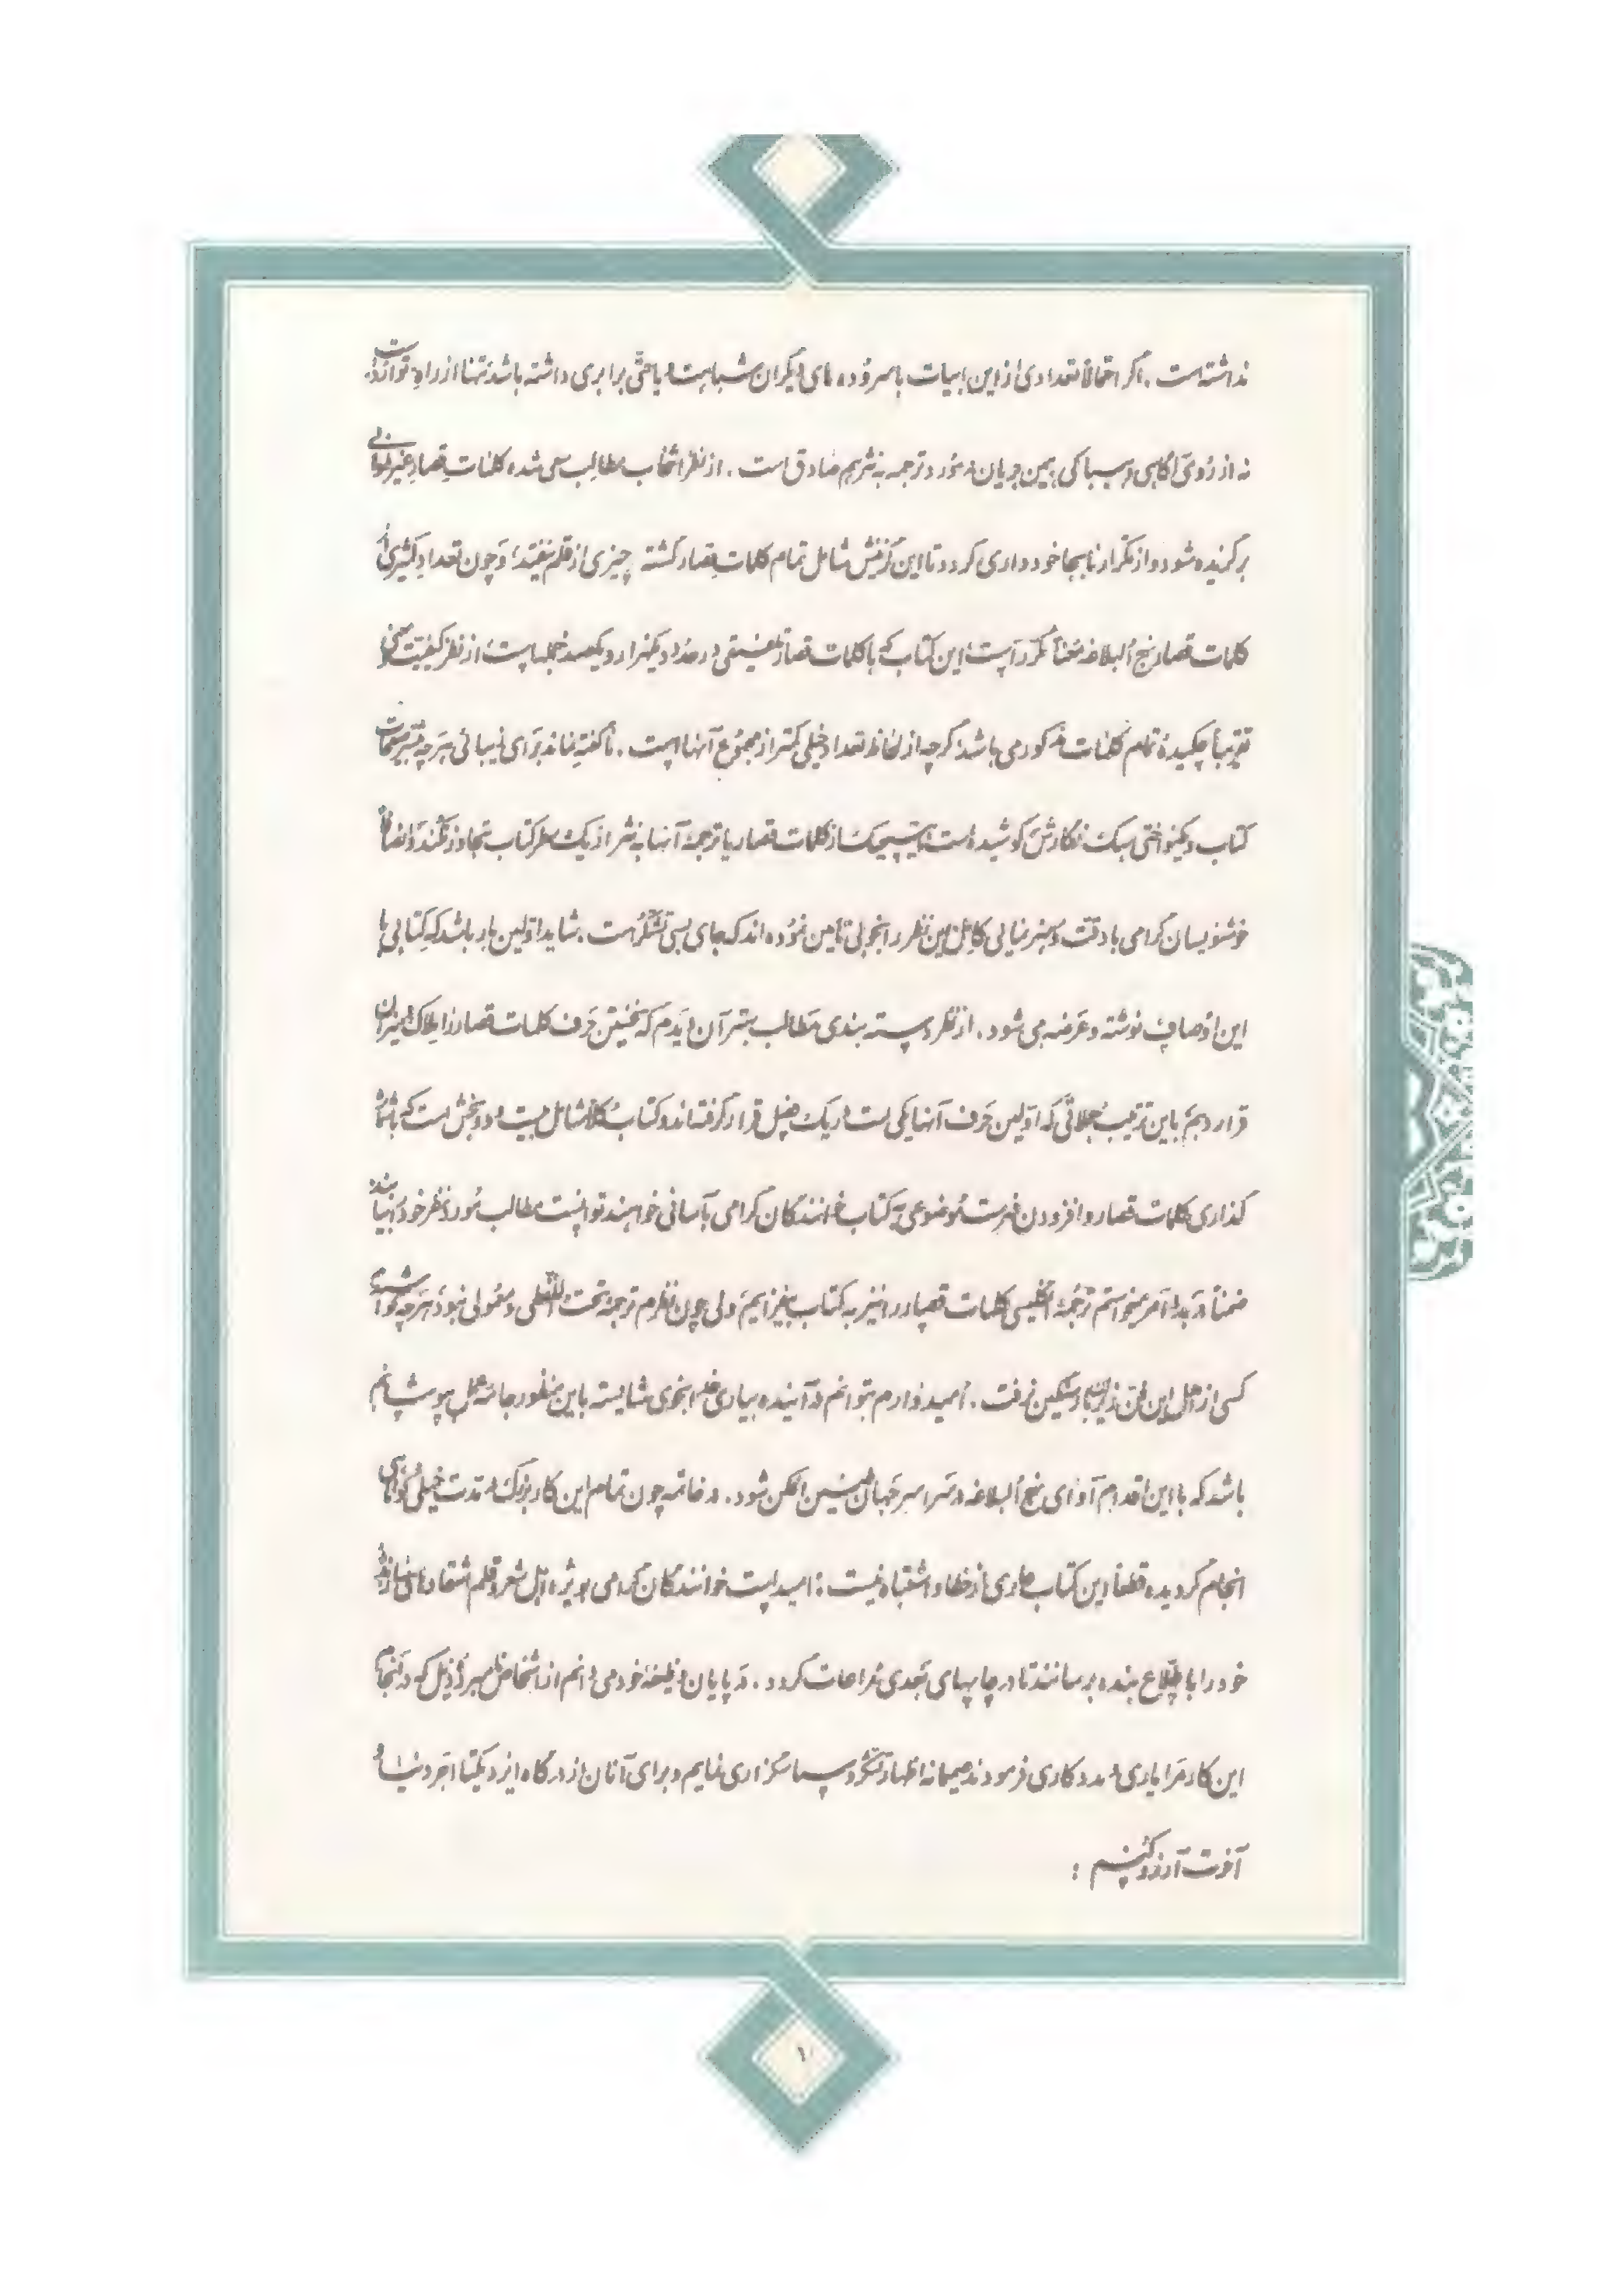 نداشته است. اگر احتمالاً تعدادی از این ابیات با سروده های دیگران شباهت و یا حتّی برابری داشته باشد تنها از راه توارد است
نه از روی آگاهی و سبکی همین جریان در مورد ترجمه به نثر هم صادق است. از نظر انتخاب مطالب سعی شده کلمات قصار غیر طولانی
برگزیده شود و از تکرار نابجا خودداری گردد تا این گزینش شامل تمام کلمات قصار گشته چیزی از قلم نیفتد؛ و چون تعداد کثیری از
کلمات قصار نهج البلاغه ضمناً مکرّر است این کتاب که با کلمات قصار تلفیقی در حدود یکهزار و یکصد جمله است از نظر کیفیت و معنی
تقریباً چکیدۀ تمام کلمات مذکور می باشد گرچه از لحاظ تعداد خیلی کمتر از مجموع آنها است. ناگفته نماند برای زیبائی هر چه بیشتر صفحات
کتاب و یکنواختی سبک نگارش کوشیده است هیچیک از کلمات قصار یا ترجمۀ آنها به نثر از یک سطر کتاب تجاوز نکند و انصافاً
خوشنویسان گرامی با دقت و هنرنمائی کامل این نظر را بخوبی تأمین نموده اند که جای بسی تشکّر است. شاید اولین بار باشد که کتابی با
این اوصاف نوشته و عرضه می شود. از نظر دسته بندی مطالب بهتر آن دیدم که نخستین حرف کلمات قصار را ملاک و میزان
قرار دهم باین ترتیب جملاتی که اوّلین حرف آنها یکی است در یک فصل قرار گرفته اند و کتاب کلاً شامل بیست و دو بخش است که با شماره
گذاری کلمات قصار و افزودن فهرست موضوعی به کتاب خوانندگان گرامی بآسانی خواهند توانست مطالب مورد نظر خود را بیابند
ضمناً در بدو امر میخواستم ترجمۀ انگلیسی کلمات قصار را نیز به کتاب بیفزایم ولی چون نظرم ترجمۀ تحت اللّفظی و معمولی نبود هر چه کوشیدم
کسی از اهل این فن زیر بار سنگین نرفت. امیدوارم بتوانم در آینده بیاری خدا بنحوی شایسته باین منظور جامۀ عمل بپوشانم
باشد که با این اقدام آوای نهج البلاغه در سراسر جهان طنین افکن شود. در خاتمه چون تمام این کار بزرگ در مدت خیلی کوتاهی
انجام گردیده قطعاً این کتاب عاری از خطا و اشتباه نیست: امید است خوانندگان گرامی بویژه اهل شعر و قلم انتقادهای سازنده
خود را با اطّلاع بنده برسانند تا در چاپهای بعدی مراعات گردد. در پایان وظیفۀ خود می دانم از اشخاص مبرّز ذیل که در انجام
این کار مرا یاری و مددکاری فرمودند صمیمانه اظهار تشکّر و سپاسگزاری نمایم و برای آنان از درگاه ایزد یکتا اجر دنیا و
آخرت آرزو کنم :